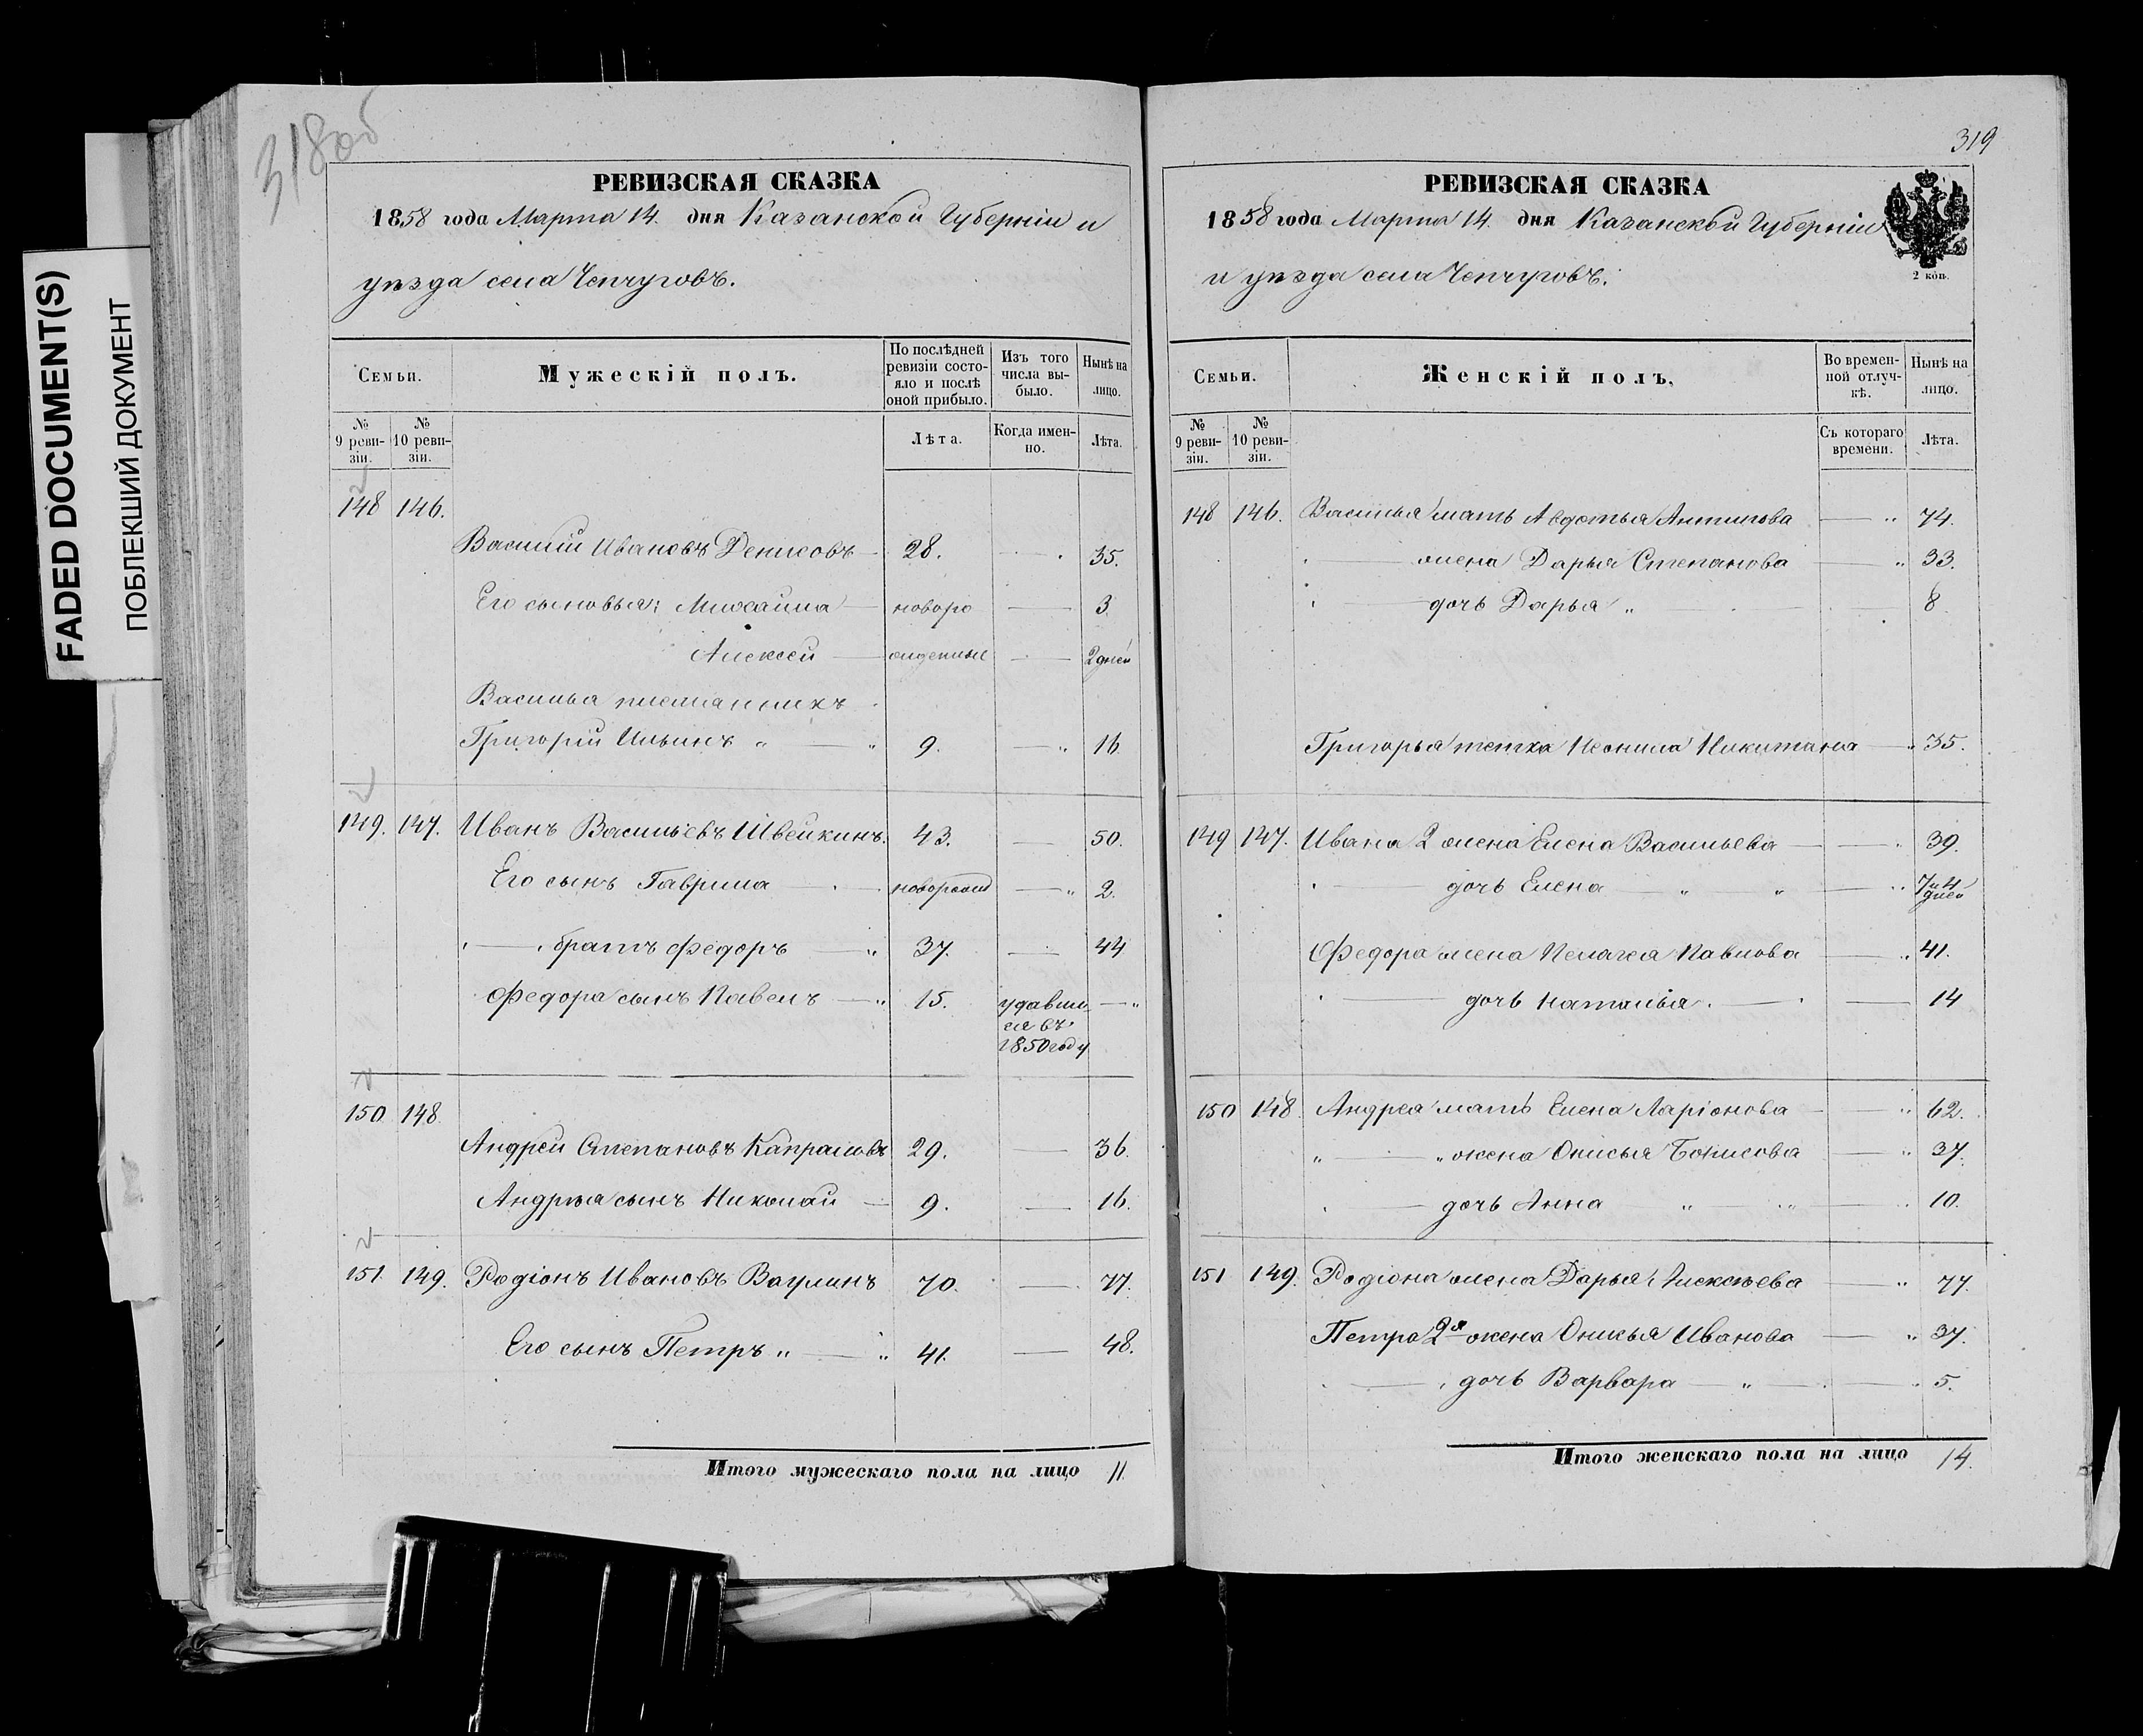 FADED DOCUMENT(S)
ПОБЛЕКШИЙ ДОКУМЕНТ
318об
РЕВИЗСКАЯ СКАЗКА
1858 года Марта 14. дня Казанской Губерніи и
уѣзда села Чепчуговъ.
Семьи.
Мужескій полъ.
По послѣдней ревизіи состояло и послѣ оной прибыло.
Изъ того числа выбыло.
Нынѣ на лицо.
№ 9 ревизіи.
№ 10 ревизіи.
Лѣта.
Когда именно.
Лѣта.
148 146.
Василій Ивановъ Денисовъ 28. 35.
Его сыновья: Михайла новоро 3
Алексей жденные 2 дней
Василья племянникъ
Григорій Ильинъ „ „ 9. „ 16
149. 147. Иванъ Васильевъ Швейкинъ. 43. 50.
Его сынъ Гаврила новорожд „ 2.
братъ Федоръ „ 37. 44
Федора сынъ Павелъ „ 15. удавил
ся въ
1850 году „
150 148
Андрей Степановъ Капраловъ 29. 36.
Андрѣя сынъ Николай 9. 16.
151. 149. Родіонъ Ивановъ Ваулинъ 70. 77.
Его сынъ Петръ „ „ 41. 48.
Итого мужескаго пола на лицо 11.
319
РЕВИЗСКАЯ СКАЗКА
1858 года Марта 14. дня Казанской Губерніи
и уѣзда села Чепчуговъ.
2 коп.
Семьи.
Женскій полъ.
Во временной отлучкѣ.
Нынѣ на лицо.
№ 9 ревизіи.
№ 10 ревизіи.
Съ котораго времени.
Лѣта.
148 146. Василья мать Авдотья Антипова „ 74.
жена Дарья Степанова „ 33.
дочь Дарья „ 8
Григорья тетка Неонила Никитина „ 35.
149 147. Ивана 2 жена Елена Васильева 39.
дочь Елена „ „ „ 7 и 4
дней
Федора жена Пелагея Павлова „ 41.
дочь Наталья. 14
150 148. Андрея мать Елена Ларіонова „ 62.
„ „ жена Онисья Борисова „ 37.
дочь Анна „ „ 10.
151 149. Родіона жена Дарья Алексѣева „ 77.
Петра 2я жена Онисья Иванова „ 37.
дочь Варвара „ 5.
Итого женскаго пола на лицо 14.